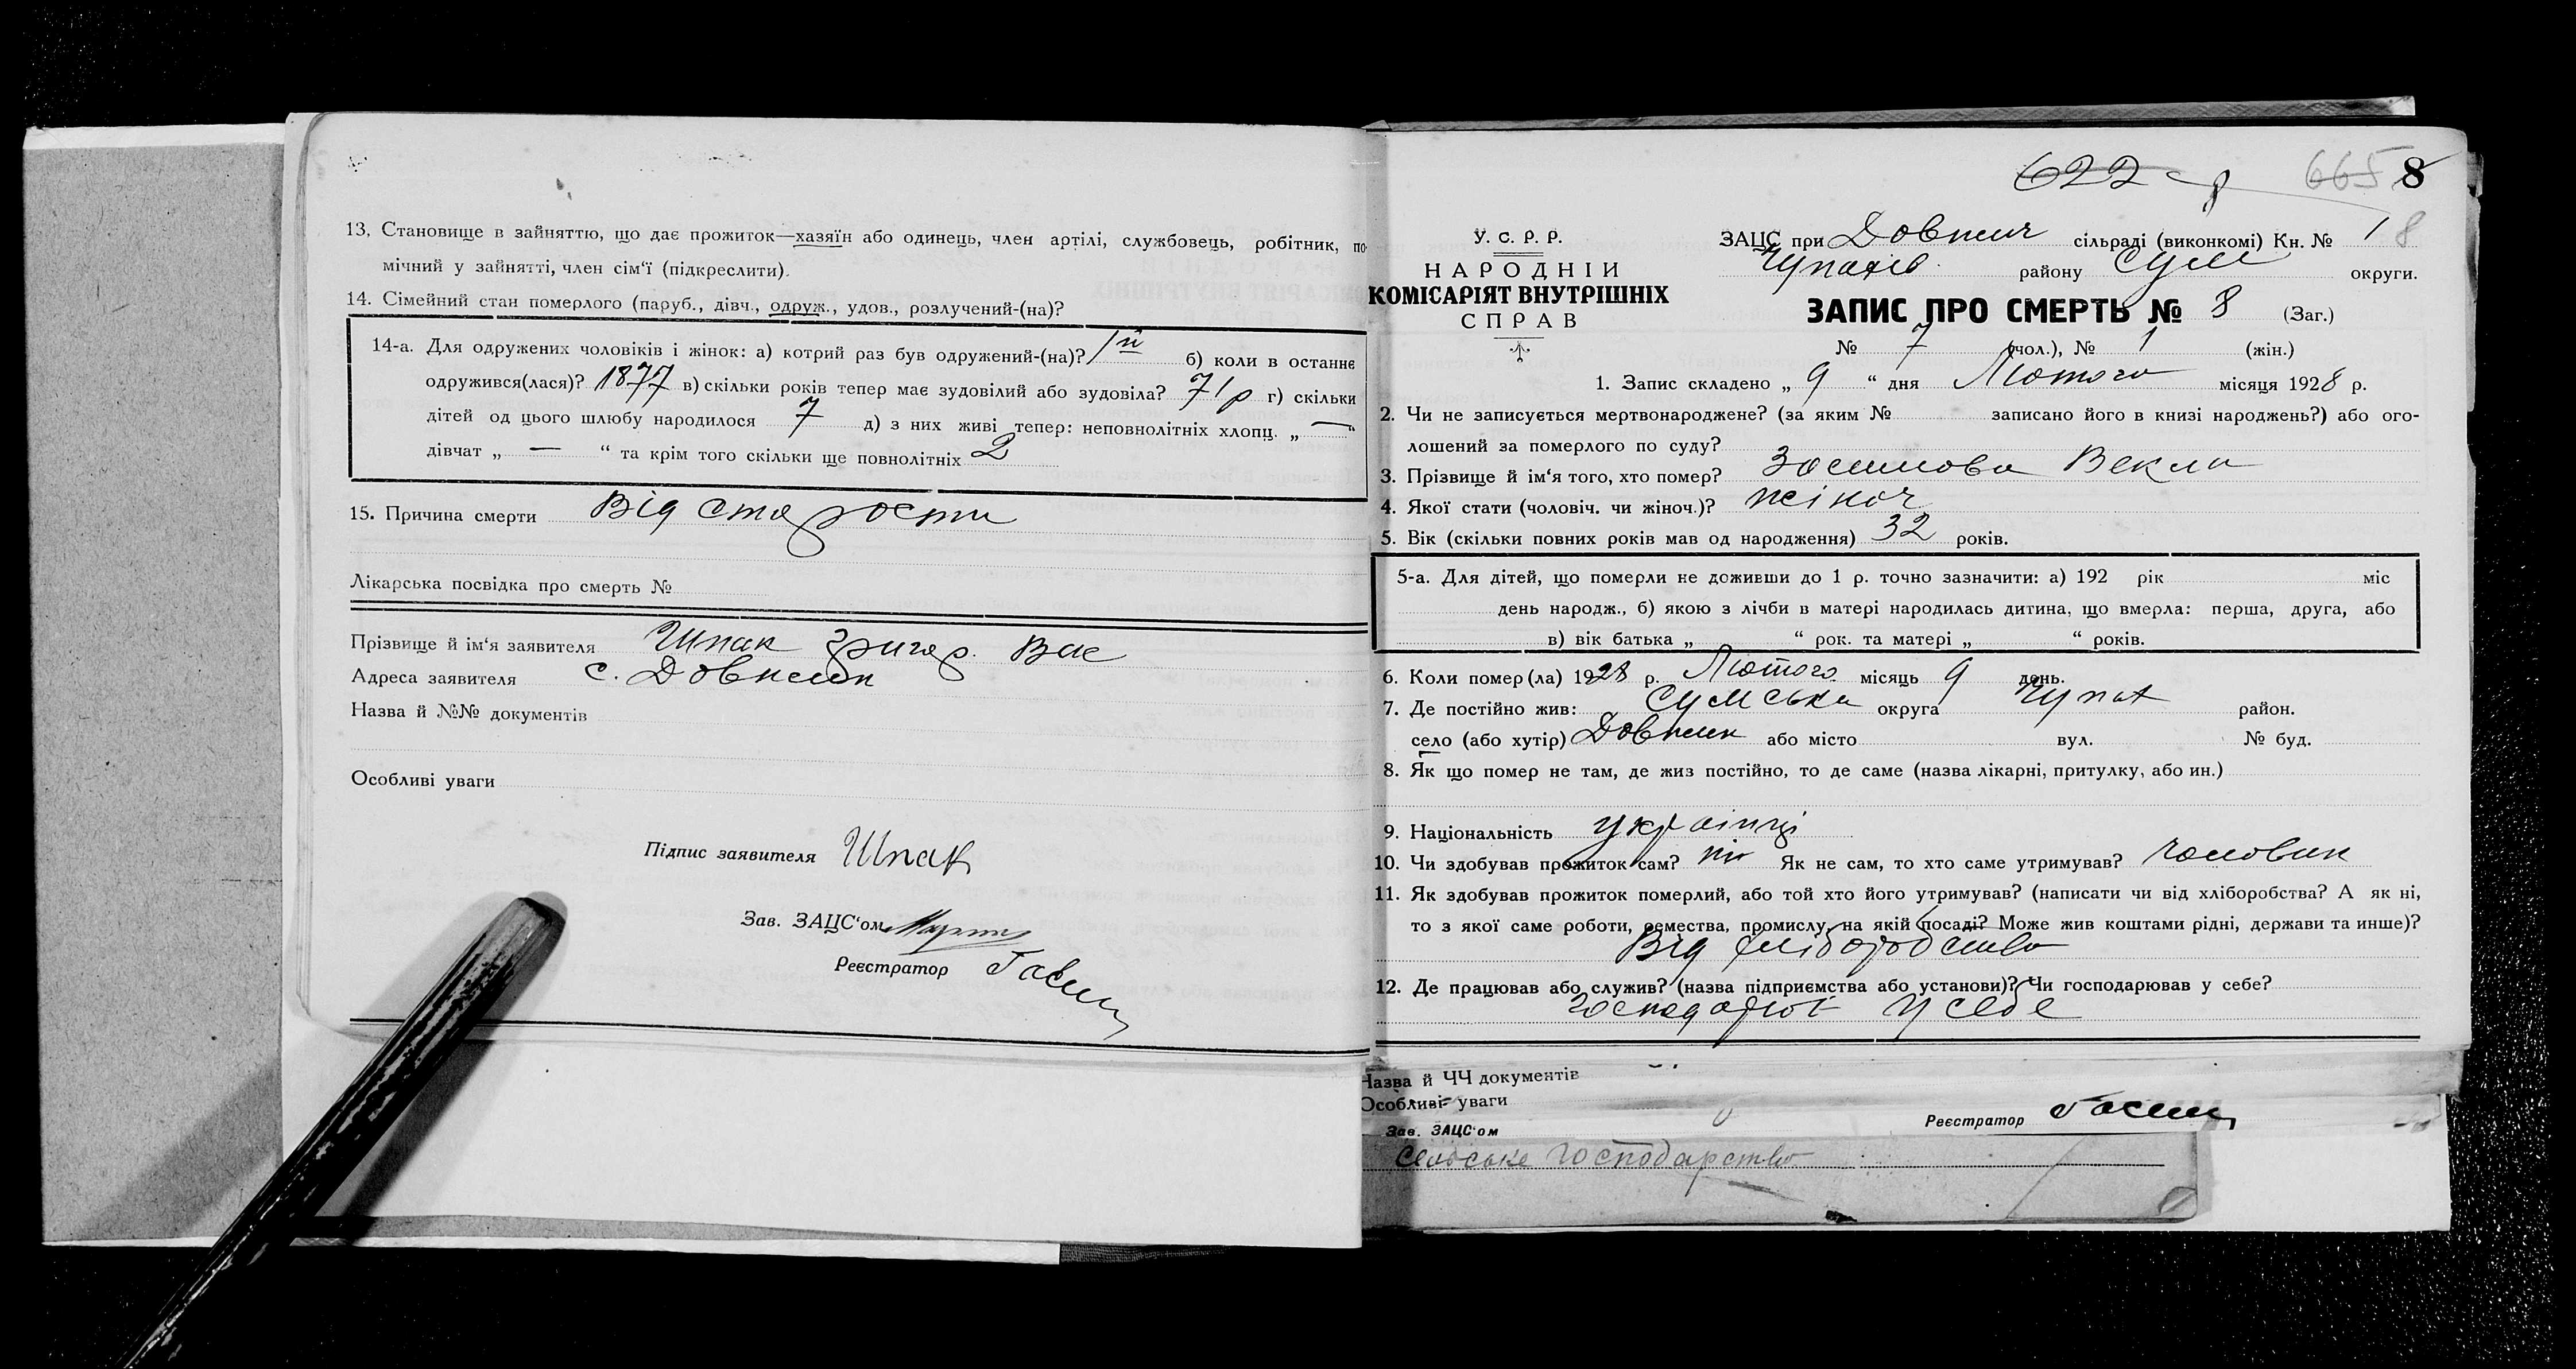 13. Становище в зайняттю, що дає прожиток—хазяїн або одинець, член артілі, службовець, робітник, по-
мічний у зайнятті, член сім'ї (підкреслити).
14. Сімейний стан померлого (паруб., дівч., одруж., удов., розлучений-(на)?
14-а. Для одружених чоловіків і жінок: а) котрий раз був одружений-(на)? 1й б) коли в останнє
одружився(лася)? 1877 в) скільки років тепер має зудовілий або зудовіла? 71 р г) скільки
дітей од цього шлюбу народилося 7 д) з них живі тепер: неповнолітніх хлопц. „ — “
дівчат „ — “ та крім того скільки ще повнолітніх 2
15. Причина смерти Від старости
Лікарська посвідка про смерть №
Прізвище й ім'я заявителя Шпак Григор. Вас
Адреса заявителя с. Довжик
Назва й №№ документів
Особливі уваги
Підпис заявителя Шпак
Зав. ЗАЦС'ом
Реєстратор
622 665 8
У. С. Р. Р.
НАРОДНІЙ
КОМІСАРІЯТ ВНУТРІШНІХ
СПРАВ
ЗАЦС при Довжич сільраді (виконкомі) Кн. № 1 8
Чупахів району Сум округи.
ЗАПИС ПРО СМЕРТЬ № 8 (Заг.)
№ 7 (чол.), № 1 (жін.)
1. Запис складено „ 9 “ дня Лютого місяця 1928 р.
2. Чи не записується мертвонароджене? (за яким № записано його в книзі народжень?) або ого-
лошений за померлого по суду?
3. Прізвище й ім'я того, хто помер? Зосимова Векла
4. Якої стати (чоловіч. чи жіноч.)? жіноч
5. Вік (скільки повних років мав од народження) 32 років.
5-а. Для дітей, що померли не доживши до 1 р. точно зазначити: а) 192 рік міс
день народж., б) якою з лічби в матері народилась дитина, що вмерла: перша, друга, або
в) вік батька „ “ рок. та матері „ “ років.
6. Коли помер(ла) 1928 р. Лютого місяць 9 день.
7. Де постійно жив: Сумська округа Чупах район.
село (або хутір) Довжик або місто вул. № буд.
8. Як що помер не там, де жив постійно, то де саме (назва лікарні, притулку, або ин.)
9. Національність українці
10. Чи здобував прожиток сам? ні Як не сам, то хто саме утримував? чоловик
11. Як здобував прожиток померлий, або той хто його утримував? (написати чи від хліборобства? А як ні,
то з якої саме роботи, ремества, промислу, на якій посаді? Може жив коштами рідні, держави та инше)?
Від хліборобства
12. Де працював або служив? (назва підприємства або установи)? Чи господарював у себе?
господарює у себе
Назва й ЧЧ документів
Особливі уваги
Зав. ЗАЦС'ом
Реєстратор
Сельське господарство